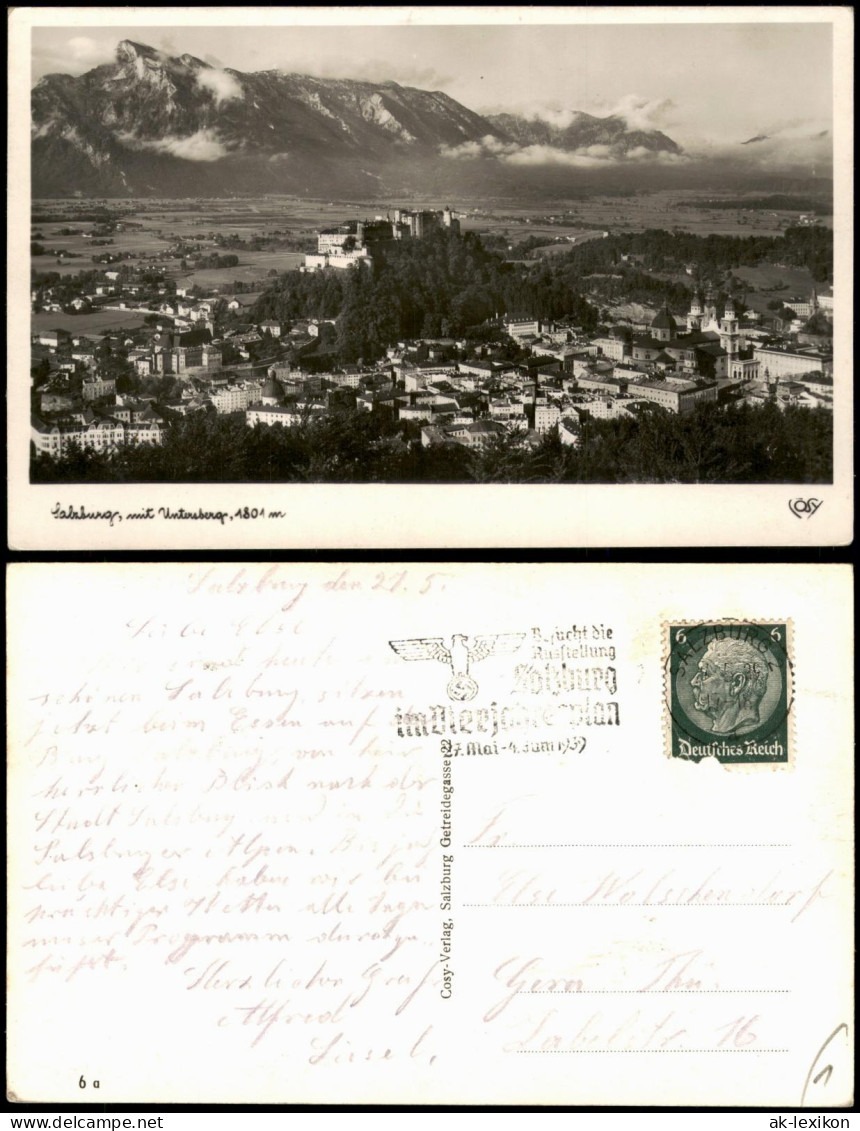 Salzburg, mit Untersberg, 1801 m
CÓSY
Salzburg den 27. 5.
Liebe Else
heute
schönen Salzburg, sitzen
jetzt beim Essen auf
Burg Salzburg, von hier
herrlicher Blick nach der
Stadt Salzburg und in die
Salzburger Alpen. Bis jetzt
liebe Else haben wir bei
prächtigen Wetter alle Tage
unser Programm durchge-
führt.
Herzliche Grüße
Alfred
Liesel.
6 a
Cosy-Verlag, Salzburg Getreidegasse 22
Besucht die
Ausstellung
Salzburg
im Vierjahresplan
27. Mai - 4. Juni 1939
SALZBURG
6 6
Deutsches Reich
Fr.
Else Wolschendorf
Gera Thü.
Zabelstr. 16
1
ak-lexikon